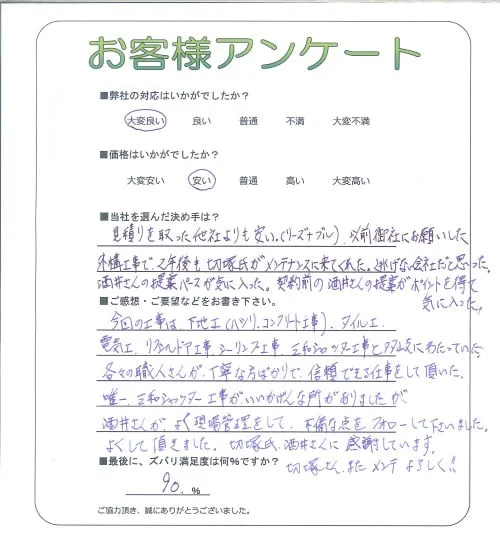 お客様アンケート
■弊社の対応はいかがでしたか？
大変良い 良い 普通 不満 大変不満
■価格はいかがでしたか？
大変安い 安い 普通 高い 大変高い
■当社を選んだ決め手は？
見積りを取った他社よりも安い。(リーズナブル)、以前御社にお願いした
外構工事で、2年後も切塚氏がメンテナンスに来てくれた。逃げない会社だと思った。
酒井さんの提案パースが気に入った。契約前の酒井さんの提案がポイントを得て
気に入った。
■ご感想・ご要望などをお書き下さい。
今回の工事は、下地工(ハツリ、コンクリート工事)、タイル工、
電気工、リフォルドア工事、シーリング工事、三和シャッター工事と多岐にわたっていた。
各々の職人さんが、丁寧な方ばかりで、信頼できる仕事をして頂いた。
唯一、三和シャッター工事がいいかげんな所がありましたが
酒井さんが、よく現場管理をして、不備な点をフォローして下さいました。
よくして頂きました。切塚氏、酒井さんに感謝しています。
切塚さん、また メンテ よろしく!!
■最後に、ズバリ満足度は何%ですか？
90. %
ご協力頂き、誠にありがとうございました。